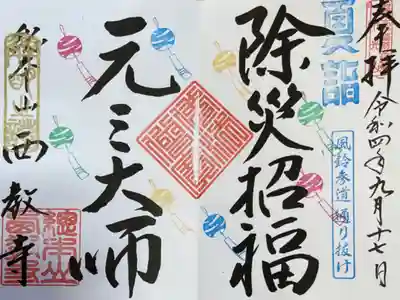 奉拝
令和四年九月十七日
夏詣
風鈴参道通り抜け
除災招福
元三大師
総本山西教寺